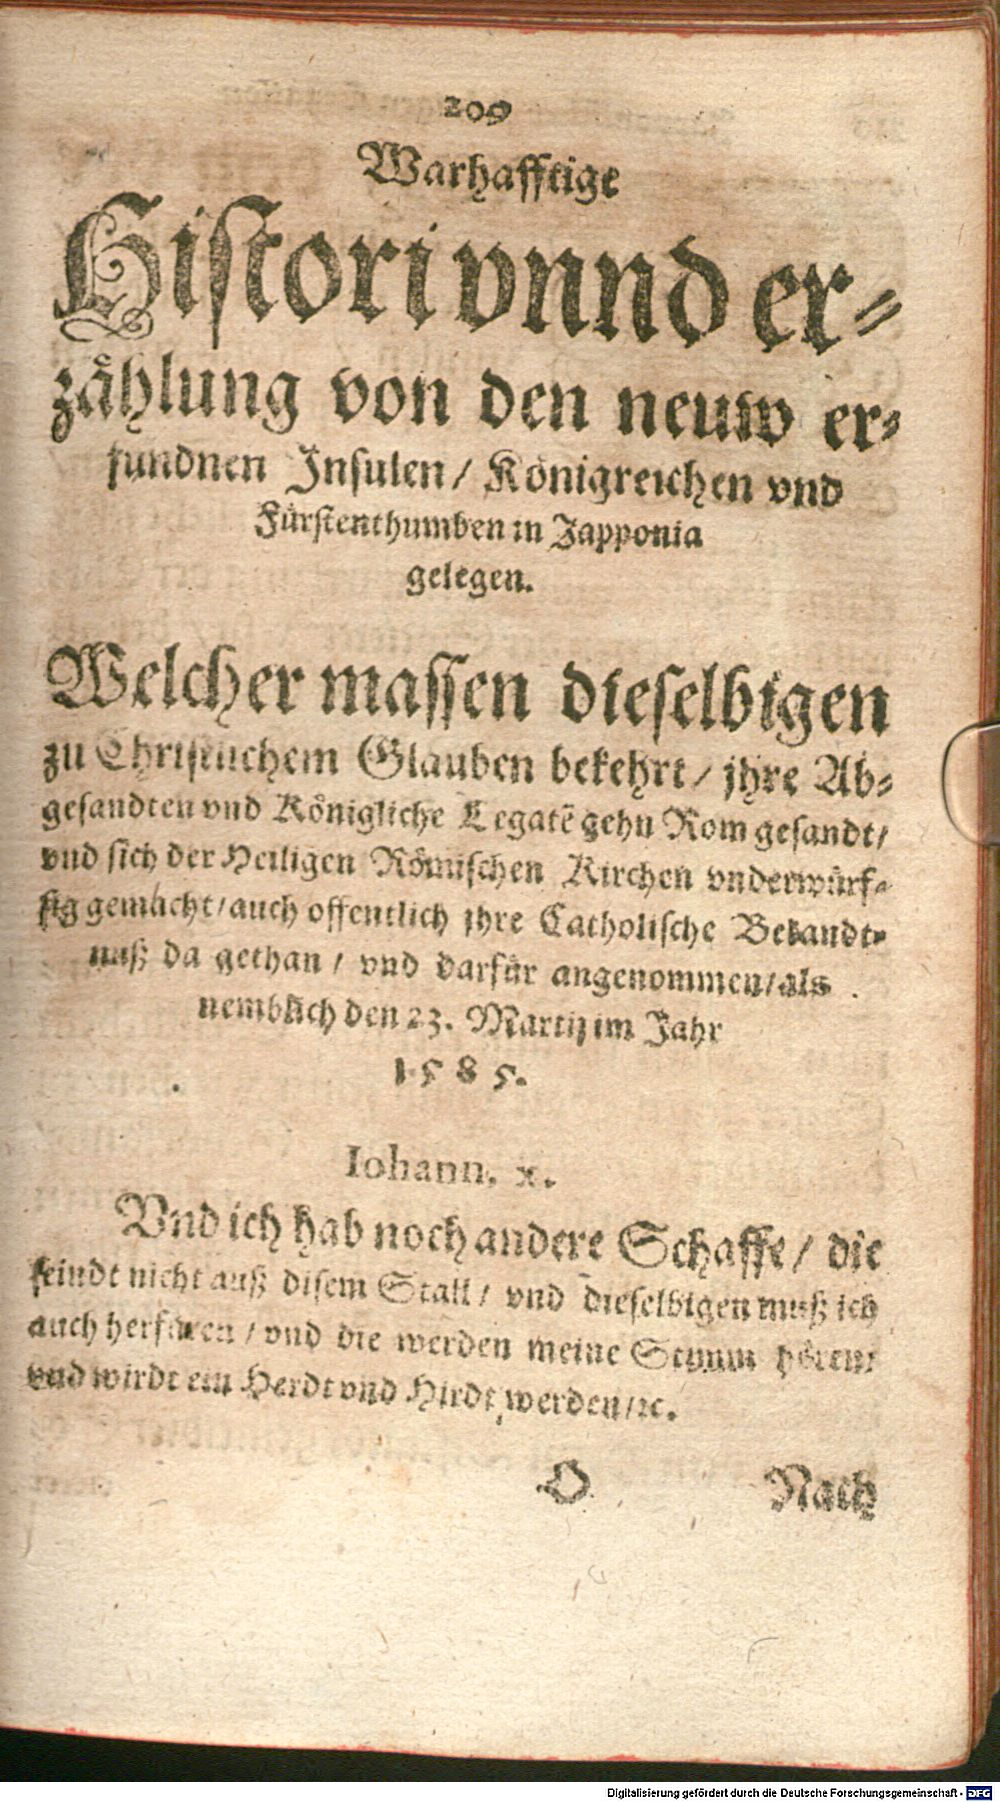 209
Warhafftige
Histori vnnd er-
zåhlung von den neuw er-
fundnen Insulen / Königreichen vnd
Fürstenthumben in Japponia
gelegen.
Welcher massen dieselbigen
zu Christlichem Glauben bekehrt / jhre Ab-
gesandten vnd Königliche Legatẽ gehn Rom gesandt /
vnd sich der Heiligen Römischen Kirchen vnderwürf-
fig gemacht / auch offentlich jhre Catholische Bekandt-
nuß da gethan / vnd darfür angenommen / als
nemblich den 23. Martij im Jahr
1585.
Iohann. x.
Vnd ich hab noch andere Schaffe / die
seindt nicht auß disem Stall / vnd dieselbigen muß ich
auch herfüren / vnd die werden meine Stimm hören /
vnd wirdt ein Herdt vnd Hirdt werden / ꝛc.
O Nach
Digitalisierung gefördert durch die Deutsche Forschungsgemeinschaft - DFG